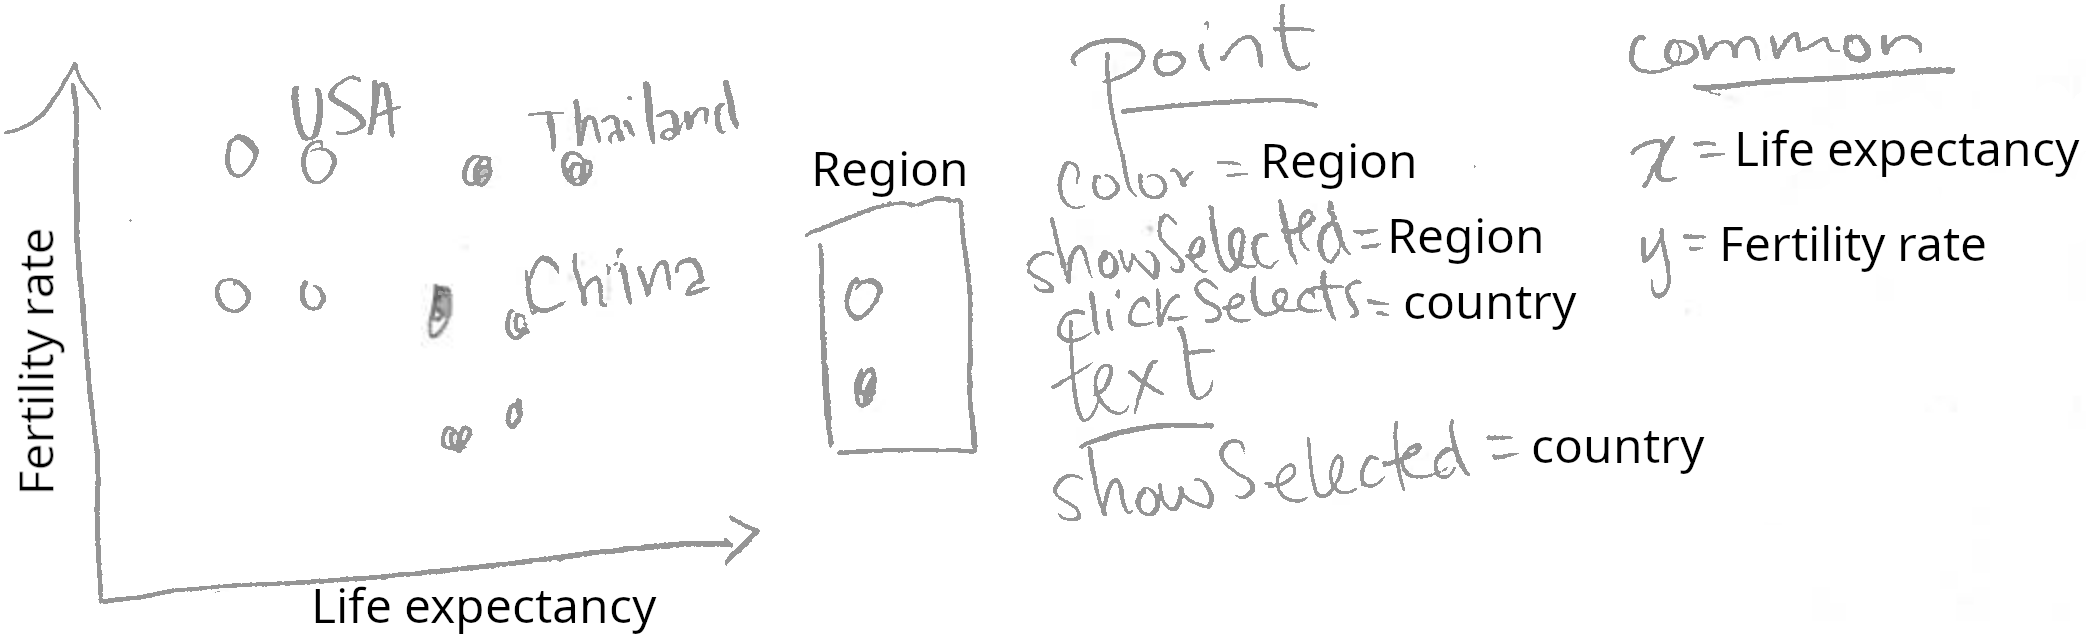 Fertility rate
USA
Thailand
China
Life expectancy
Region
Point
color = Region
showSelected = Region
clickSelects = country
text
showSelected = country
common
x = Life expectancy
y = Fertility rate